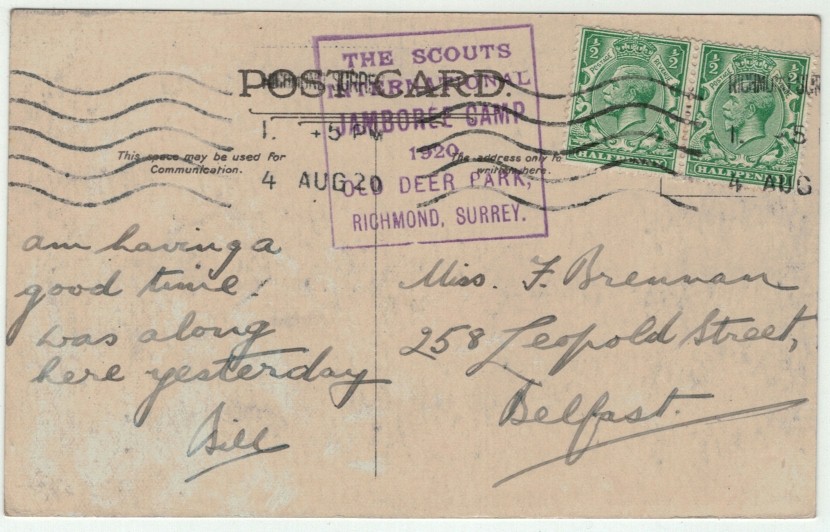 POST CARD.
THE SCOUTS
INTERNATIONAL
JAMBOREE CAMP
1920
OLD DEER PARK,
RICHMOND, SURREY.
RICHMOND SURREY
1. +5 PM
4 AUG 20
½ ½
POSTAGE
HALFPENNY
½ ½
POSTAGE
HALFPENNY
RICHMOND SUR
1. 5
4 AUG
This space may be used for
Communication.
The address only to
be written here.
am having a
good time.
was along
here yesterday
Bill
Miss. F. Brennan
258 Leopold Street,
Belfast.